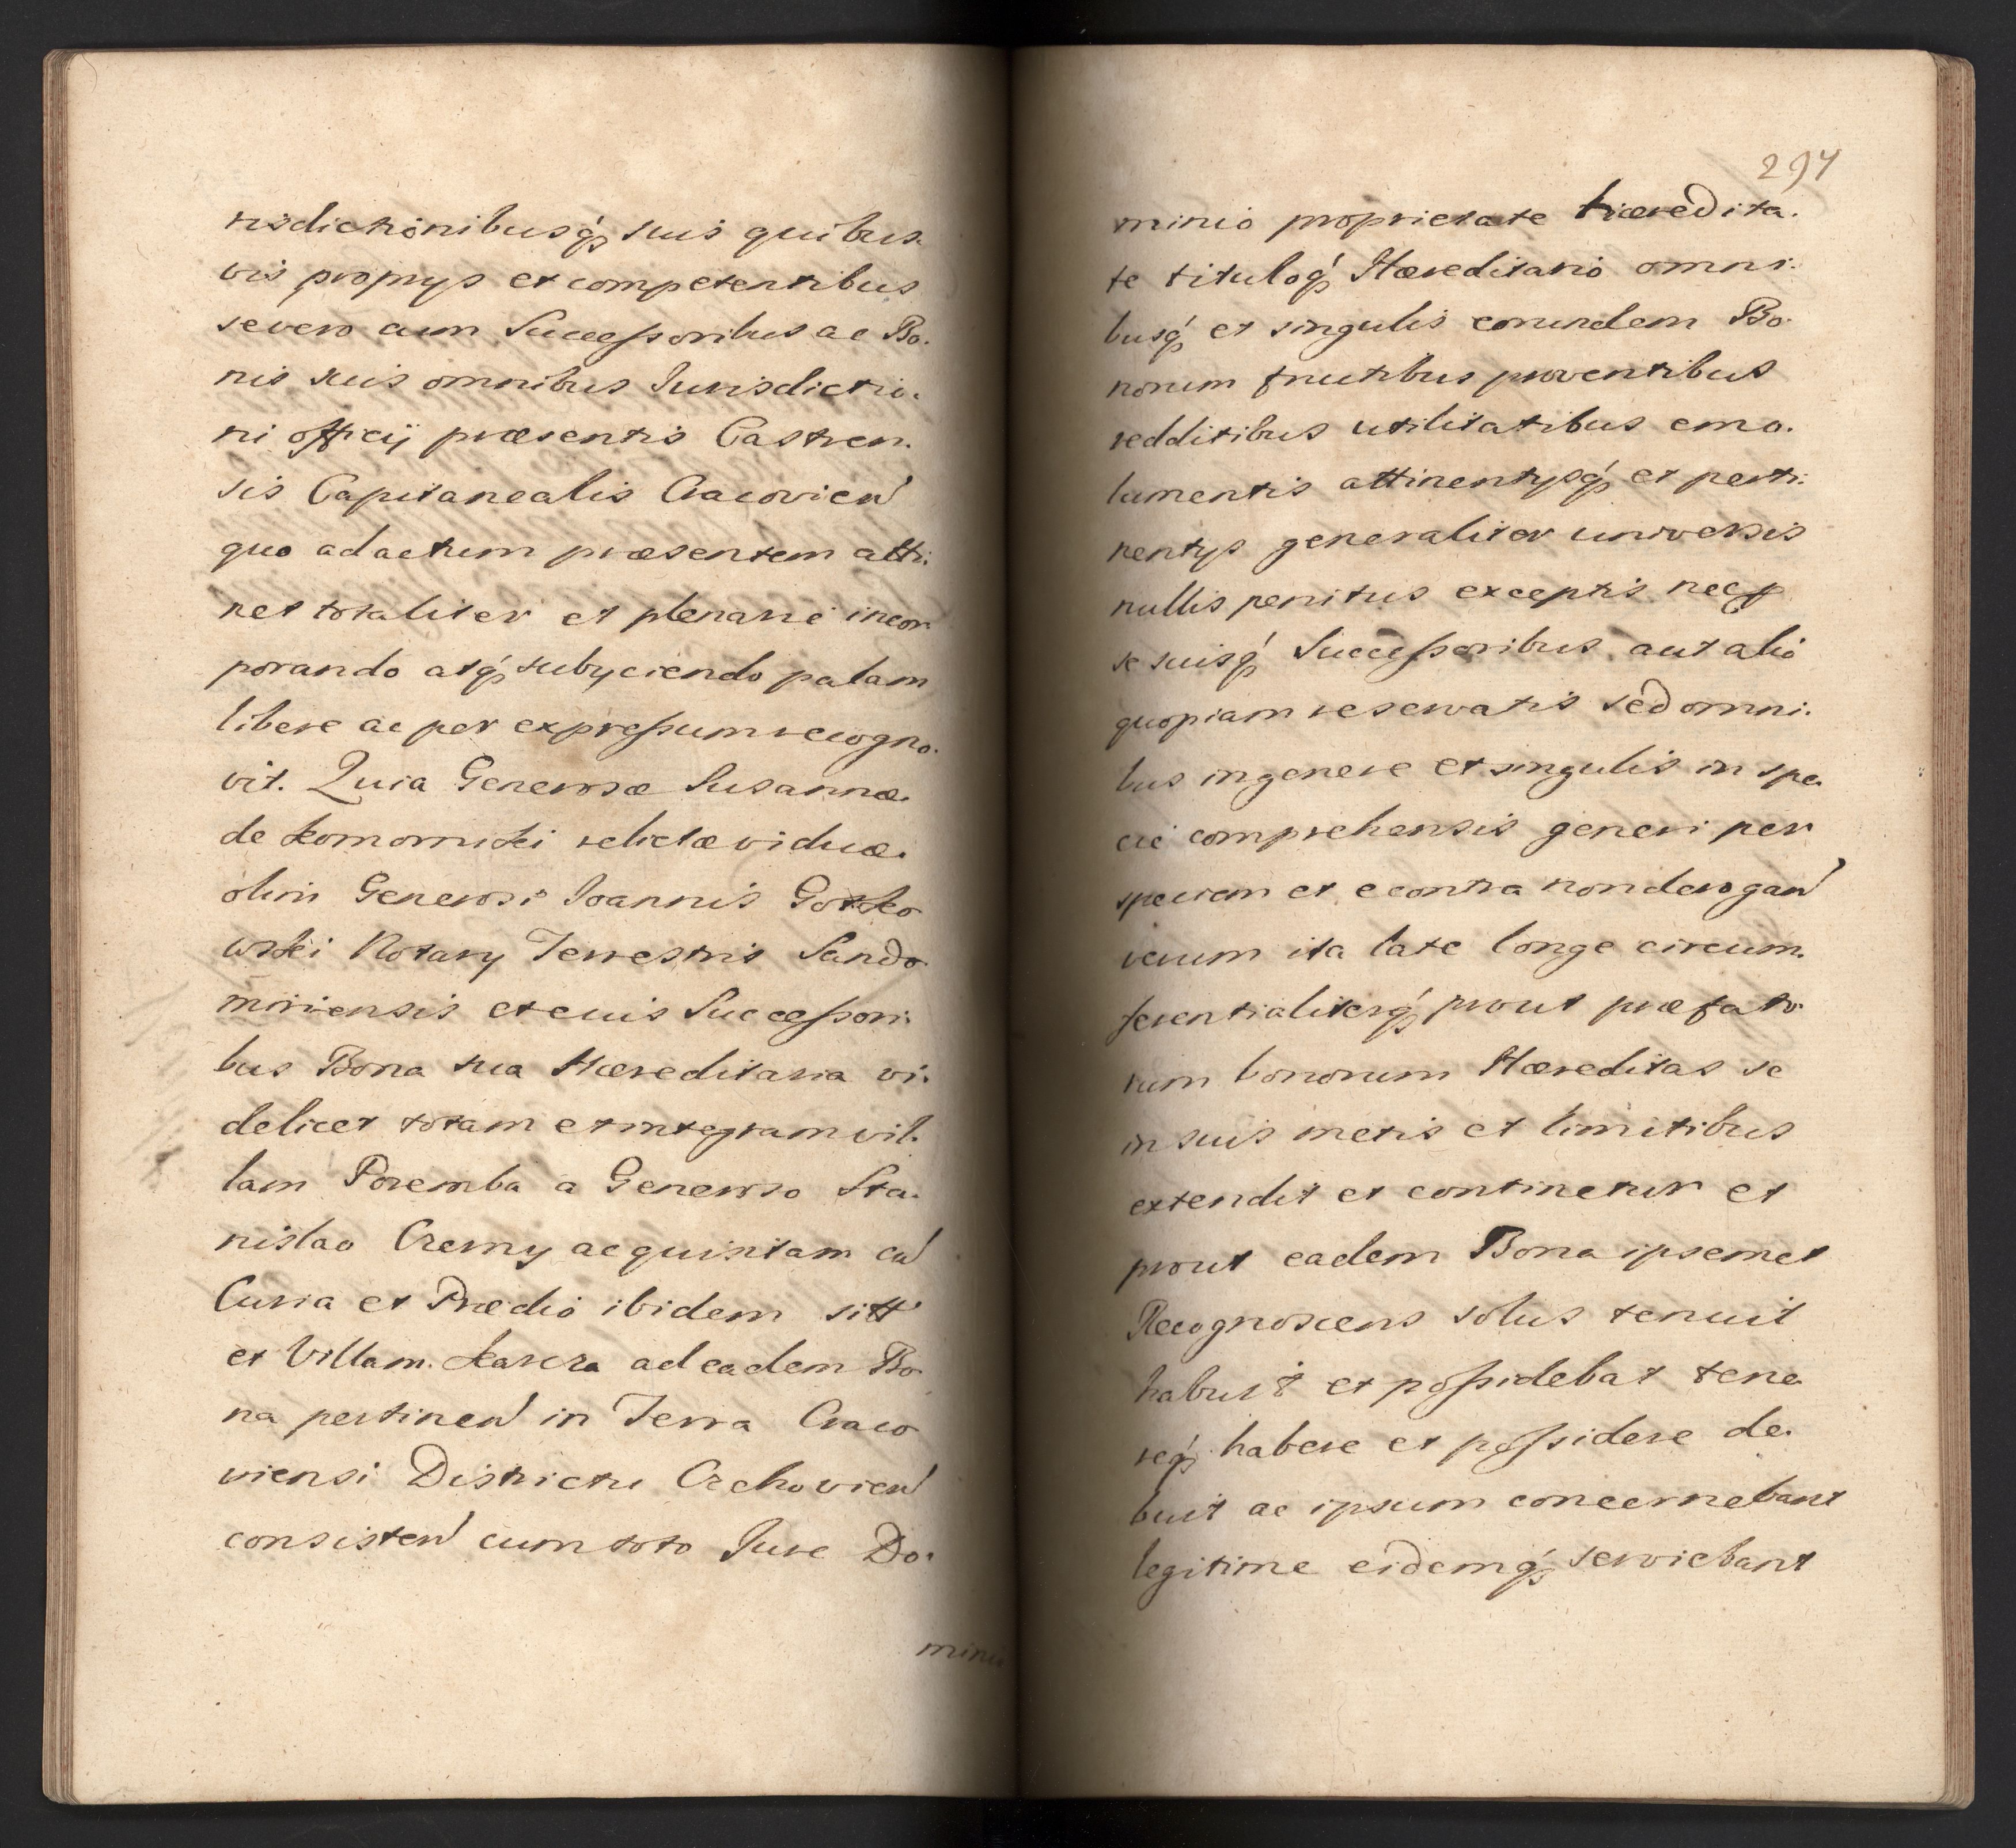 risdictionibusq́ꝫ suis quibus
vis proprys et competentibus
se vero cum Successoribus ac Bo.
nis suis omnibus Jurisdictio.
ni officij præsentis Castren.
sis Capitanealis Cracovien̄
quo ad actum præsentem atti.
net totaliter et plenarie incor
porando atq́ꝫ subyciendo palam
libere ac per expressum recogno.
vit. Quia Generosæ Susannæ.
de Komorniki relictæ viduæ.
olim Generosi Joannis Gorsko
wski Notary Terrestris Sando
miriensis et euis Successori:
bus Bona sua Hæreditaria vi.
delicet totam et integram vil.
lam Poremba a Generoso Sta.
nislao Czerny acquisitam cū
Curia et Prædio ibidem sitt̄
et Villam Karcza ad eadem Bo
na pertinen̄ in Terra Craco
viensi Districtu Czchovien̄
consisten̄ cum toto Jure Do.
minio
294
minio proprietate hæredita.
te tituloq́ꝫ Hæreditario omni.
busq́ꝫ et singulis eorundem Bo.
norum fructibus proventibus
redditibus utilitatibus emo.
lumentis attinentysq́ꝫ et perti.
nentys generaliter universis
nullis penitus exceptis neqꝫ
se suisq́ꝫ Successoribus aut alio
quopiam reservatis sed omni.
bus in genere et singulis in spe.
cie comprehensis generi per
speciem et e contra non derogan̄
verum ita late longe circum.
ferentialiterq́ꝫ prout præfato
rum bonorum Hæreditas se
in suis metis et limitibus
extendit et continetur et
prout eadem Bona ipsemet
Recognoscens solus tenuit
habuit et possidebat tene
req́ꝫ habere et possidere de.
buit ac ipsum concernebant
legitime eidemq́ꝫ serviebant